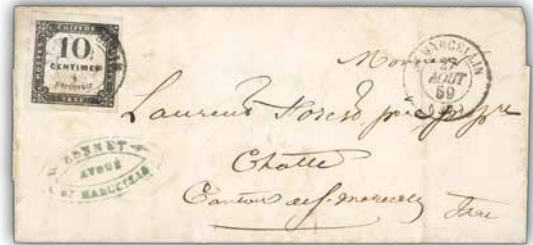 CHIFFRE
10
CENTIMES
à
percevoir
TAXE
MARCELLIN
27
AOUT
59
Monsieur
Laurent
Chatte
Canton de St. Marcellin
Isère
BONNET
AVOUÉ
ST MARCELLIN